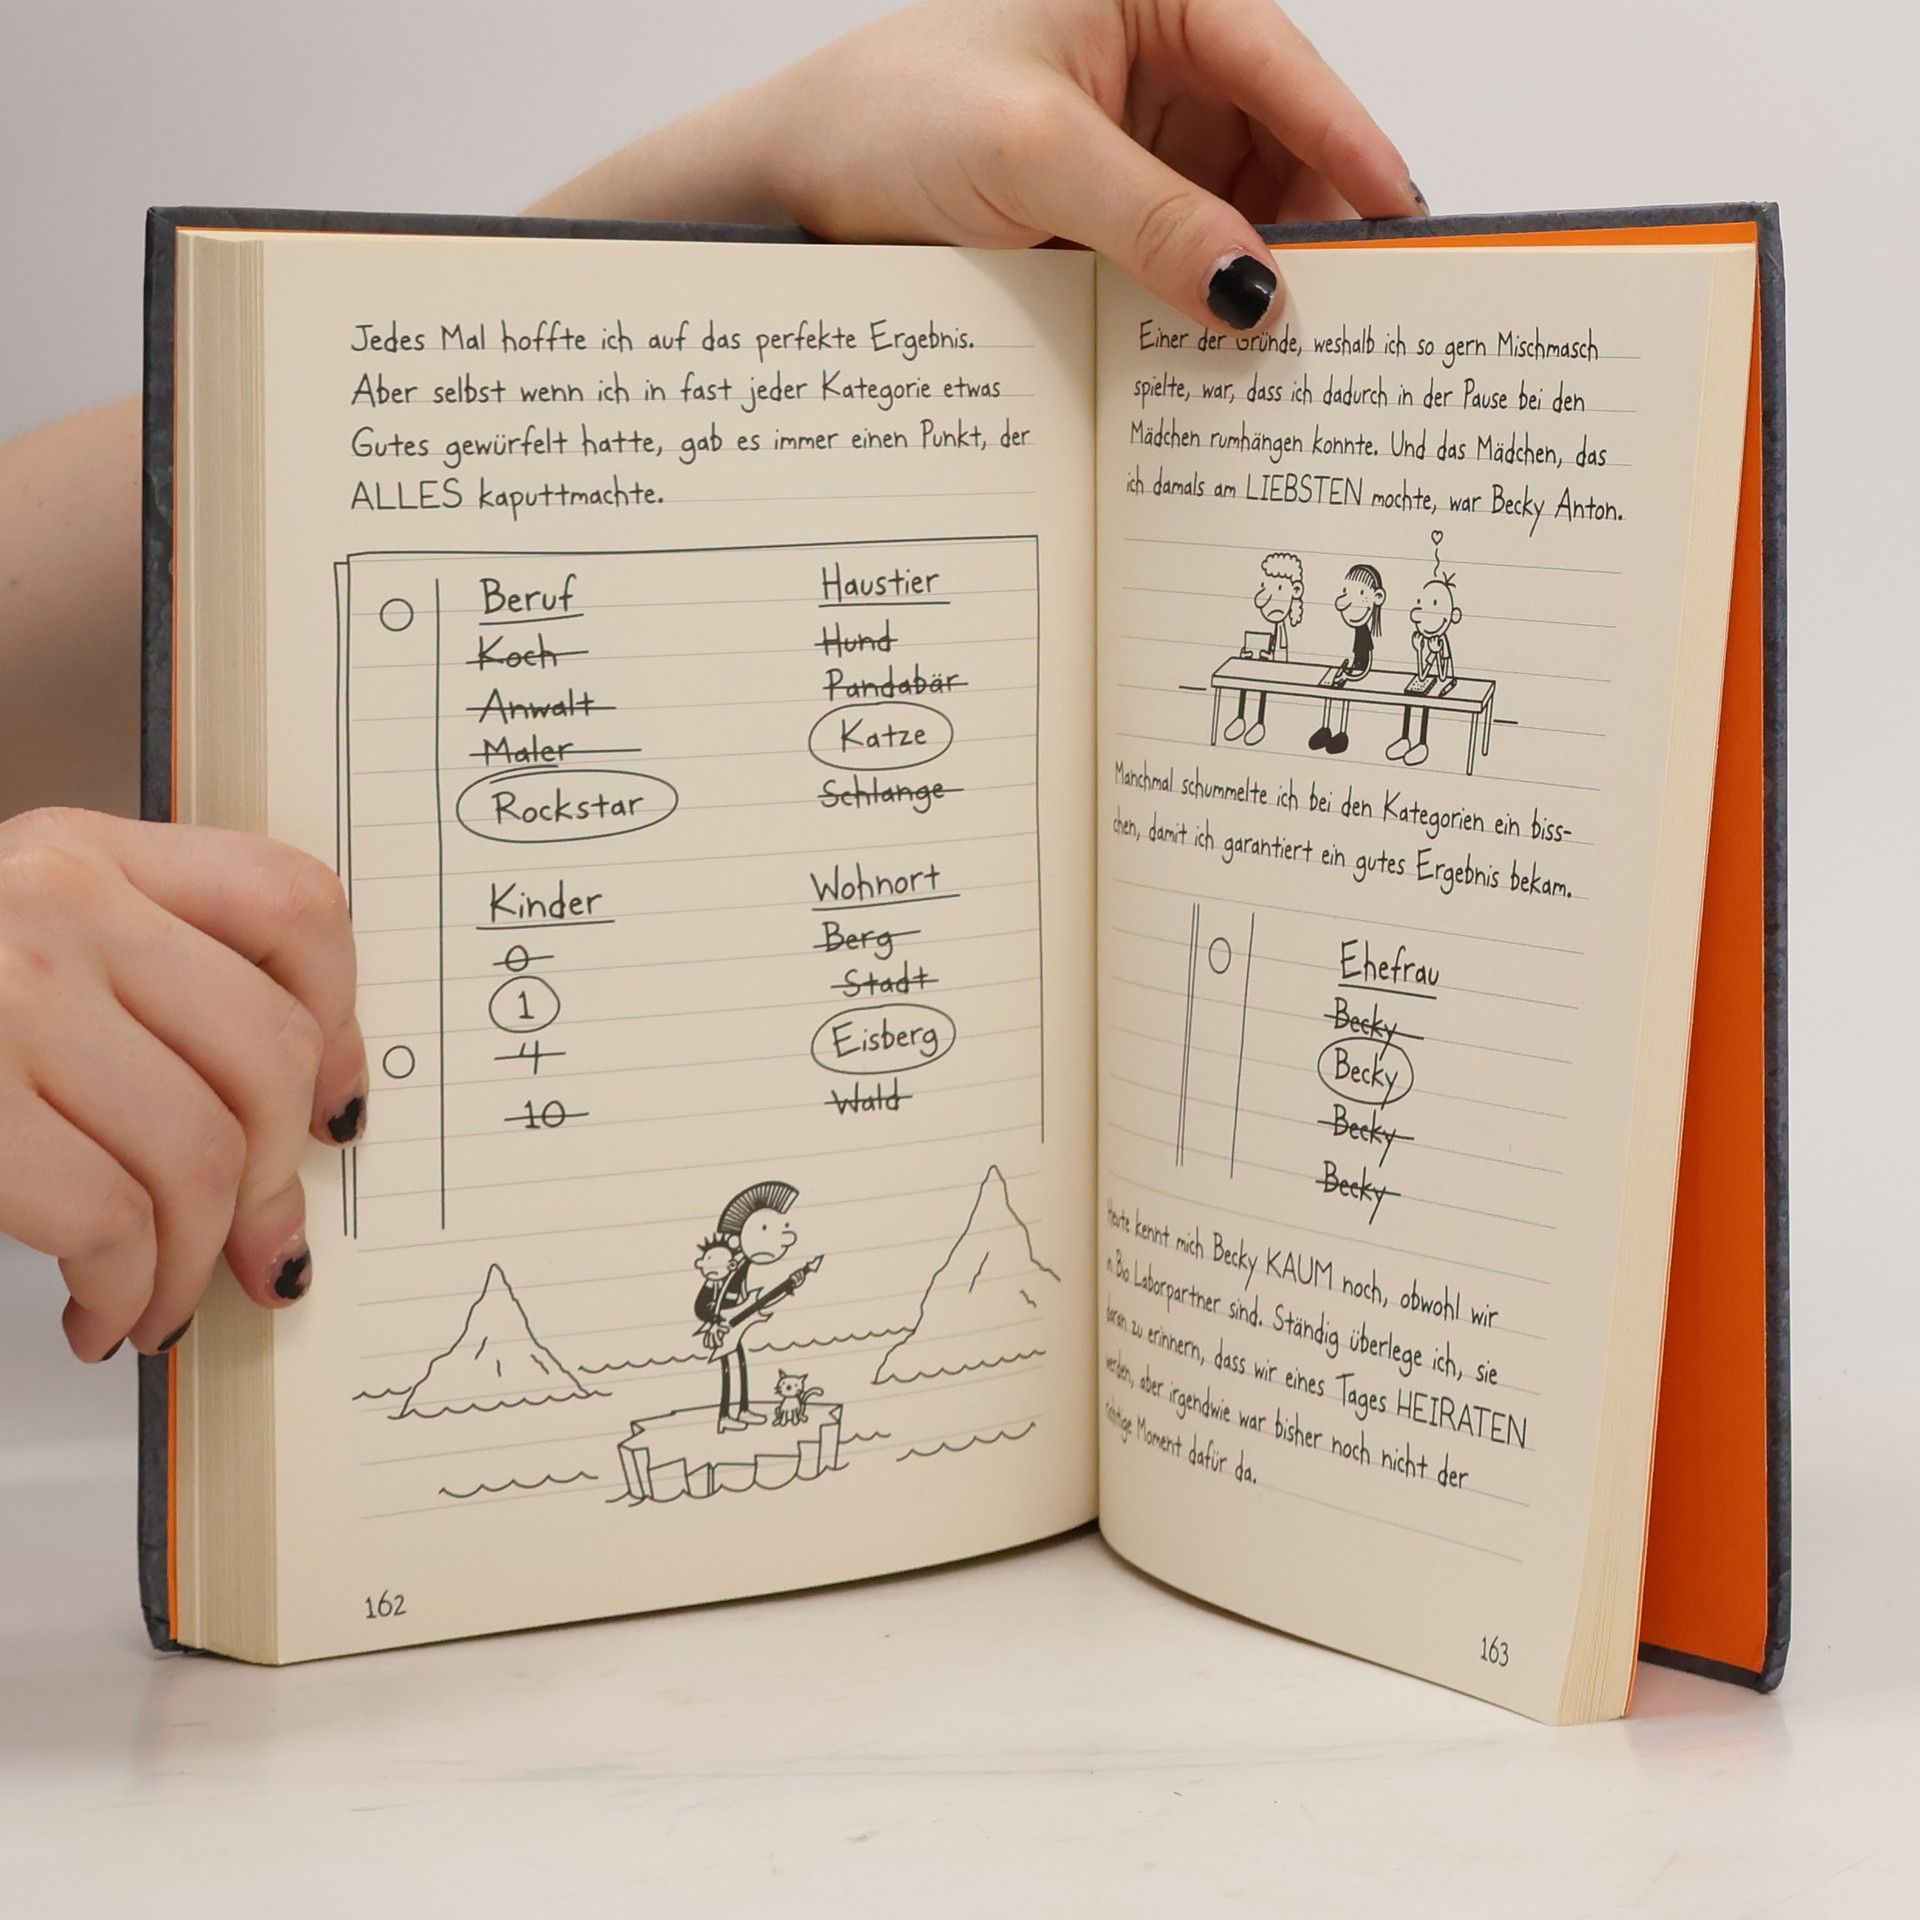 Jedes Mal hoffte ich auf das perfekte Ergebnis.
Aber selbst wenn ich in fast jeder Kategorie etwas
Gutes gewürfelt hatte, gab es immer einen Punkt, der
ALLES kaputtmachte.
Beruf
Koch
Anwalt
Maler
Rockstar
Haustier
Hund
Pandabär
Katze
Schlange
Kinder
0
1
4
10
Wohnort
Berg
Stadt
Eisberg
Wald
162
Einer der Gründe, weshalb ich so gern Mischmasch
spielte, war, dass ich dadurch in der Pause bei den
Mädchen rumhängen konnte. Und das Mädchen, das
ich damals am LIEBSTEN mochte, war Becky Anton.
Manchmal schummelte ich bei den Kategorien ein biss-
chen, damit ich garantiert ein gutes Ergebnis bekam.
Ehefrau
Becky
Becky
Becky
Becky
Heute kennt mich Becky KAUM noch, obwohl wir
in Bio Laborpartner sind. Ständig überlege ich, sie
daran zu erinnern, dass wir eines Tages HEIRATEN
werden, aber irgendwie war bisher noch nicht der
richtige Moment dafür da.
163